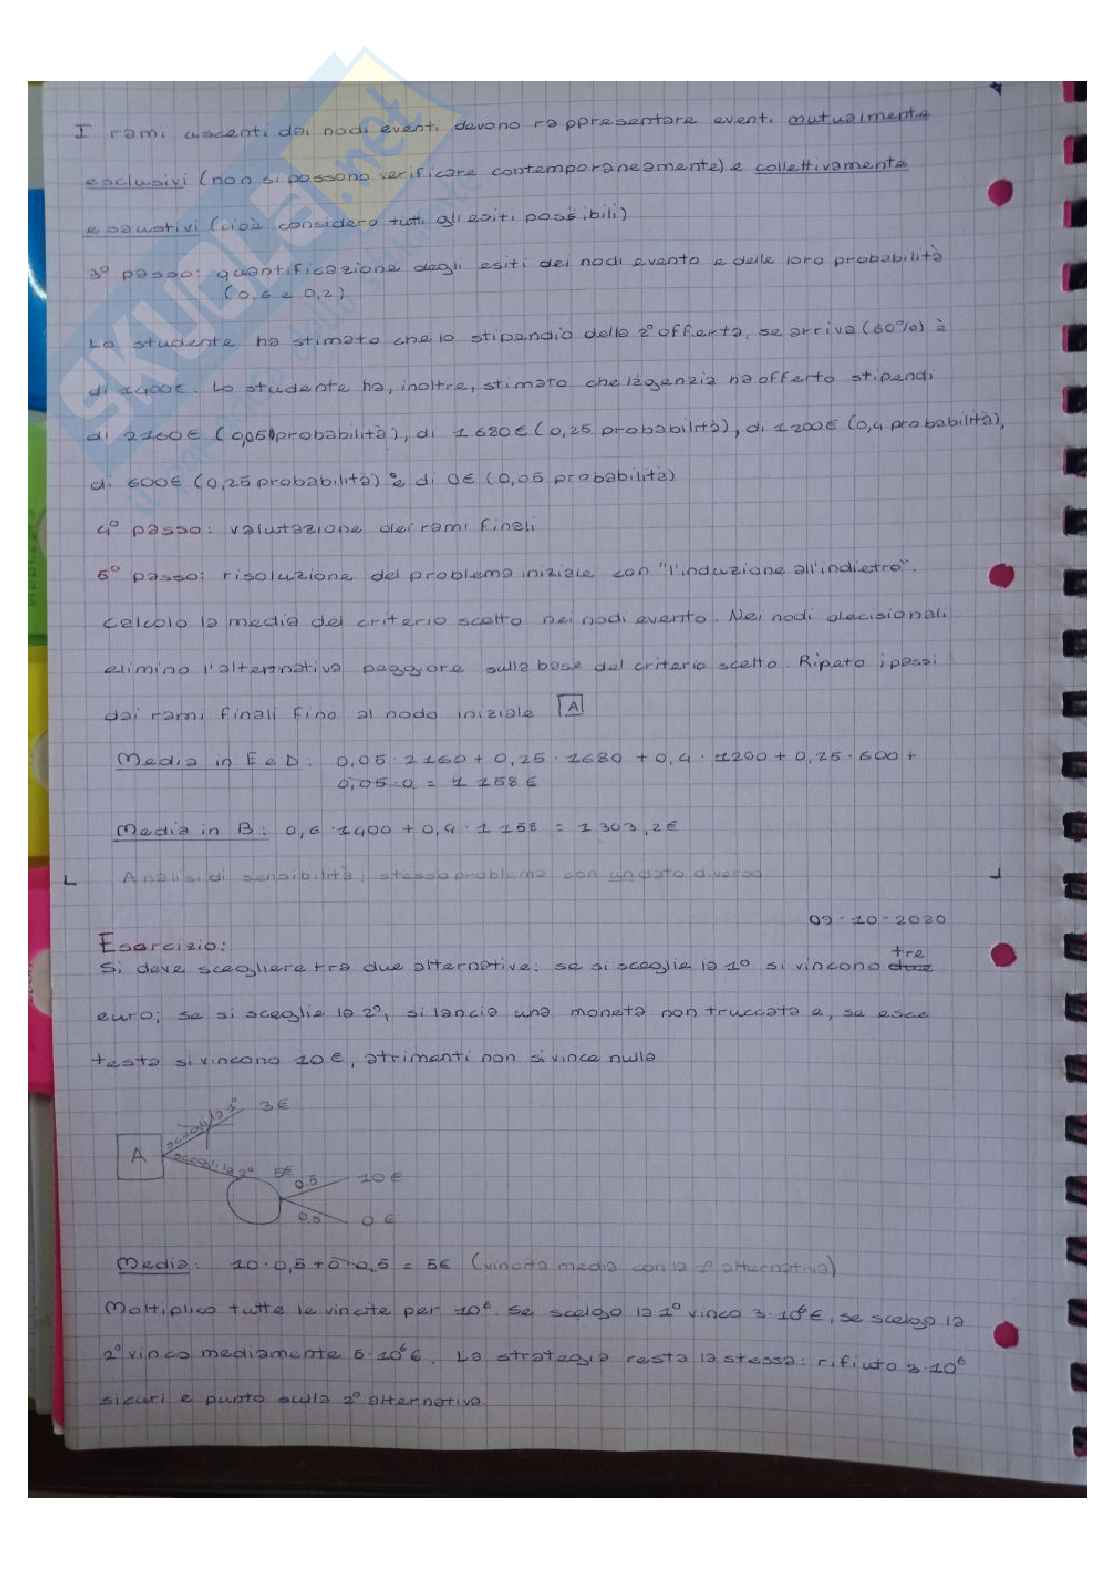 I rami uscenti dai nodi eventi devono rappresentare eventi mutualmente
esclusivi (non si possono verificare contemporaneamente) e collettivamente
esaustivi (cioè considero tutti gli esiti possibili)
3° passo: quantificazione degli esiti dei nodi evento e delle loro probabilità
(0,6 e 0,2)
Lo studente ha stimato che lo stipendio della 2° offerta, se arriva (60%) è
di 1400€. Lo studente ha, inoltre, stimato che l'agenzia ha offerto stipendi
di 2160€ (0,05 probabilità), di 1680€ (0,25 probabilità), di 1200€ (0,4 probabilità),
di 600€ (0,25 probabilità) e di 0€ (0,05 probabilità)
4° passo: valutazione dei rami finali
5° passo: risoluzione del problema iniziale con "l'induzione all'indietro".
Calcolo la media del criterio scelto nei nodi evento. Nei nodi decisionali
elimino l'alternativa peggiore sulla base del criterio scelto. Ripeto i passi
dai rami finali fino al nodo iniziale A
Media in E e D: 0,05·2160 + 0,25·1680 + 0,4·1200 + 0,25·600 +
0,05·0 = 1158€
Media in B: 0,6·1400 + 0,4·1158 = 1303,2€
Analisi di sensibilità: stesso problema con un dato diverso
09-10-2020
Esercizio:
tre
Si deve scegliere tra due alternative: se si sceglie la 1° si vincono due
euro; se si sceglie la 2°, si lancia una moneta non truccata e, se esce
testa si vincono 10€, atrimenti non si vince nulla
scegli la 1° 3€
A
scegli la 2° 5€
0.5 10€
0.5 0€
Media: 10·0,5 + 0·0,5 = 5€ (vincita media con la 2° alternativa)
Moltiplico tutte le vincite per 10⁶. Se scelgo la 1° vinco 3·10⁶€, se scelgo la
2° vinco mediamente 5·10⁶€. La strategia resta la stessa: rifiuto 3·10⁶
sicuri e punto sulla 2° alternativa
SKUOLA.net